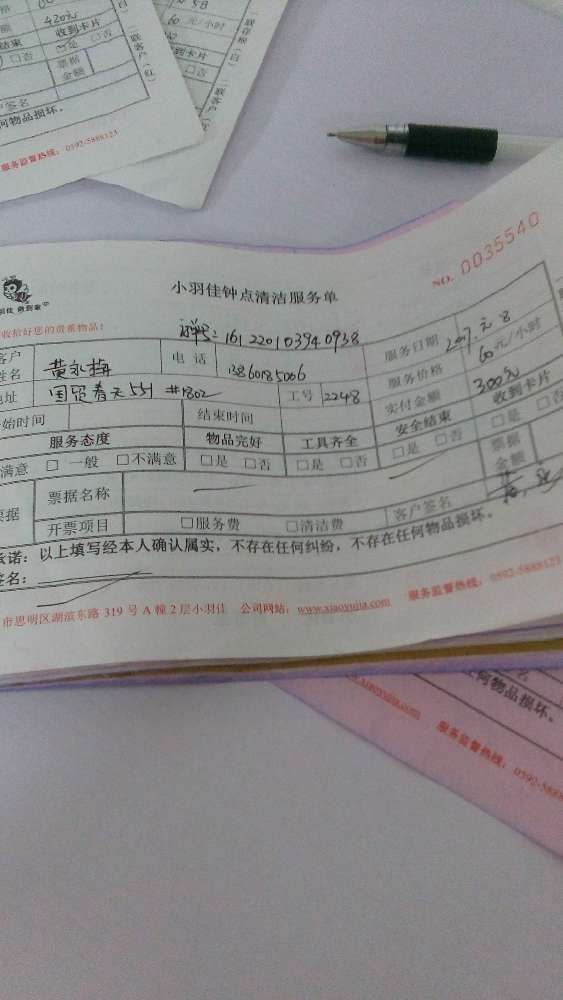 420元
收到卡片
结束
是 □否
票据
金额
户签名
何物品损坏。
服务监督热线：0592-5888123
60元/小时
收到卡片
□是 □否
二联客户（红）
一联存根（白）
NO. 0035540
小羽佳钟点清洁服务单
收拾好您的贵重物品！
16122010394 0938
客户
姓名
电话
13860185006
服务日期
服务价格
60元/小时
地址
国贸春天551 #1802
工号
2248
实付金额
300元
开始时间
结束时间
安全结束
收到卡片
服务态度
物品完好
工具齐全
□是 □否
□是 □否
满意 □一般 □不满意
□是 □否
□是 □否
票据
票据名称
票据
金额
开票项目
□服务费
□清洁费
客户签名
承诺：以上填写经本人确认属实，不存在任何纠纷，不存在任何物品损坏。
签名：
市思明区湖滨东路 319 号 A 幢 2 层小羽佳 公司网站：www.xiaoyujia.com 服务监督热线：0592-5888123
何物品损坏。
www.xiaoyujia.com
服务监督热线：0592-5888